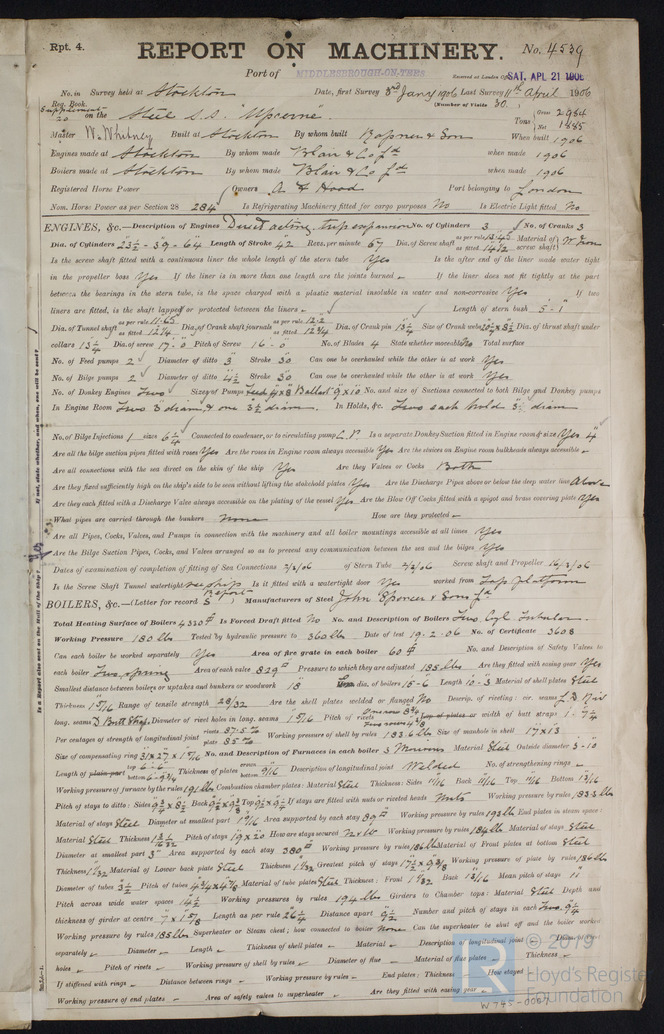 Rpt. 4.
REPORT ON MACHINERY. No. 4539
Port of MIDDLESBROUGH-ON-TEES Received at London Office SAT. APL 21 1906
No. in Survey held at Stockton Date, first Survey 3rd Jany 1906 Last Survey 11th April 1906
Reg. Book. (Number of Visits 30.)
Supplement 20 on the Steel S.S. "Upcerne" Tons Gross 2984 Net 1885
Master W. Whitney Built at Stockton By whom built Ropner & Son When built 1906
Engines made at Stockton By whom made Blair & Co Ltd when made 1906
Boilers made at Stockton By whom made Blair & Co Ltd when made 1906
Registered Horse Power Owners A. F. Hood Port belonging to London
Nom. Horse Power as per Section 28 284 Is Refrigerating Machinery fitted for cargo purposes No Is Electric Light fitted No
ENGINES, &c.—Description of Engines Direct acting, trip. expansion No. of Cylinders 3 No. of Cranks 3
Dia. of Cylinders 23½ - 39 - 64 Length of Stroke 42 Revs. per minute 67 Dia. of Screw shaft as per rule as fitted Material of screw shaft W. Iron
Is the screw shaft fitted with a continuous liner the whole length of the stern tube Yes Is the after end of the liner made water tight
in the propeller boss Yes If the liner is in more than one length are the joints burned – If the liner does not fit tightly at the part
between the bearings in the stern tube, is the space charged with a plastic material insoluble in water and non-corrosive Yes If two
liners are fitted, is the shaft lapped or protected between the liners – Length of stern bush 5-1"
Dia. of Tunnel shaft as per rule 11.65 as fitted 12¼ Dia. of Crank shaft journals as per rule 12.2 as fitted 12¾ Dia. of Crank pin 13¼ Size of Crank webs Dia. of thrust shaft under
collars 13¼ Dia. of screw 17-0 Pitch of Screw 16-0 No. of Blades 4 State whether moveable No Total surface
No. of Feed pumps 2 Diameter of ditto 3 Stroke 30 Can one be overhauled while the other is at work Yes
No. of Bilge pumps 2 Diameter of ditto 4½ Stroke 30 Can one be overhauled while the other is at work Yes
No. of Donkey Engines Two Sizes of Pumps Feed 4x8 Ballast 9x10 No. and size of Suctions connected to both Bilge and Donkey pumps
In Engine Room Two 3 diam, & one 3½ diam. In Holds, &c. Two each hold diam
No. of Bilge Injections 1 sizes 6¼ Connected to condenser, or to circulating pump C.P. Is a separate Donkey Suction fitted in Engine room & size Yes 4"
Are all the bilge suction pipes fitted with roses Yes Are the roses in Engine room always accessible Yes Are the sluices on Engine room bulkheads always accessible –
Are all connections with the sea direct on the skin of the ship Yes Are they Valves or Cocks Both
Are they fixed sufficiently high on the ship's side to be seen without lifting the stokehold plates Yes Are the Discharge Pipes above or below the deep water line Above
Are they each fitted with a Discharge Valve always accessible on the plating of the vessel Yes Are the Blow Off Cocks fitted with a spigot and brass covering plate Yes
What pipes are carried through the bunkers None How are they protected –
Are all Pipes, Cocks, Valves, and Pumps in connection with the machinery and all boiler mountings accessible at all times Yes
Are the Bilge Suction Pipes, Cocks, and Valves arranged so as to prevent any communication between the sea and the bilges Yes
Dates of examination of completion of fitting of Sea Connections 2/3/06 of Stern Tube 2/3/06 Screw shaft and Propeller 16/3/06
Is the Screw Shaft Tunnel watertight see Ship Report Is it fitted with a watertight door Yes worked from Top platform
BOILERS, &c.—(Letter for record S) Manufacturers of Steel John Spencer & Sons Ld.
Total Heating Surface of Boilers 4320 Is Forced Draft fitted No No. and Description of Boilers Two Cyl. Tubular
Working Pressure 180 lbs Tested by hydraulic pressure to 360 lbs Date of test 19-2-06 No. of Certificate 3608
Can each boiler be worked separately Yes Area of fire grate in each boiler 60 No. and Description of Safety Valves to
each boiler Two spring Area of each valve 8.29 Pressure to which they are adjusted 185 lbs Are they fitted with easing gear Yes
Smallest distance between boilers or uptakes and bunkers or woodwork 18 dia. of boilers 15-6 Length 10-3 Material of shell plates Steel
Thickness 1 5/16 Range of tensile strength 28/32 Are the shell plates welded or flanged No Descrip. of riveting: cir. seams
long. seams D. Butt Strap Diameter of rivet holes in long. seams 1 5/16 Pitch of rivets lap of plates or width of butt straps
Per centages of strength of longitudinal joint rivets 87.5% plate 85% Working pressure of shell by rules 183.6 lbs Size of manhole in shell 17x13
Size of compensating ring No. and Description of Furnaces in each boiler 3 Morisons Material Steel Outside diameter 3-10
Length of plain part top 6-6 bottom 6-9¾ Thickness of plates crown bottom 9/16 Description of longitudinal joint Welded No. of strengthening rings –
Working pressure of furnace by the rules 191 lbs Combustion chamber plates: Material Steel Thickness: Sides 11/16 Back 11/16 Top 11/16 Bottom 13/16
Pitch of stays to ditto: Sides Back Top If stays are fitted with nuts or riveted heads Nuts Working pressure by rules 183.3 lbs
Material of stays Steel Diameter at smallest part Area supported by each stay 89 Working pressure by rules 193 lbs End plates in steam space:
Material Steel Thickness Pitch of stays 19x20 How are stays secured N & W Working pressure by rules 184 lbs Material of stays Steel
Diameter at smallest part 3" Area supported by each stay 380 Working pressure by rules 186 lbs Material of Front plates at bottom Steel
Thickness Material of Lower back plate Steel Thickness Greatest pitch of stays Working pressure of plate by rules 186 lbs
Diameter of tubes 3½ Pitch of tubes Material of tube plates Steel Thickness: Front Back 13/16 Mean pitch of stays 11
Pitch across wide water spaces 14½ Working pressures by rules 194 lbs Girders to Chamber tops: Material Steel Depth and
thickness of girder at centre Length as per rule 26¼ Distance apart 9½ Number and pitch of stays in each Two 9¼
Working pressure by rules 185 lbs Superheater or Steam chest; how connected to boiler None Can the superheater be shut off and the boiler worked
separately – Diameter – Length – Thickness of shell plates – Material – Description of longitudinal joint Diam. of rivet
holes – Pitch of rivets – Working pressure of shell by rules – Diameter of flue – Material of flue plates – Thickness
If stiffened with rings – Distance between rings – Working pressure by rules – End plates: Thickness How stayed
Working pressure of end plates – Area of safety valves to superheater – Are they fitted with easing gear
W 745-0067
© 2019
Lloyd's Register
Foundation
Is a Report also sent on the Hull of the Ship? If not, state whether, and when, one will be sent?
Yes